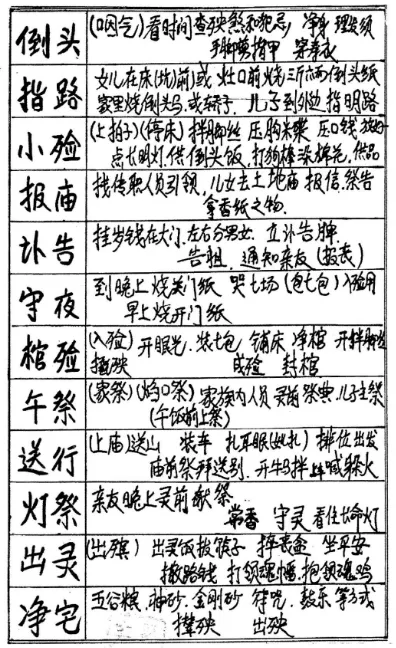 倒头
(咽气)看时间查殃煞和犯忌 净身 理发须
手脚剪指甲 穿寿衣
指路
女儿在床(炕)前或灶口前烧三斤六两倒头纸
家里烧倒头马或轿子 儿子到外边指明路
小殓
(上拍子)(停床)拌脚丝 压胸 压口钱
点长明灯.供倒头饭,打狗棒 棉花,供品
报庙
找传职人员引领,儿女去土地庙报信.祭告
拿香纸之物.
讣告
挂岁钱在大门,左右分男女 立讣告牌
告祖,通知亲友(报丧)
守夜
到晚上烧关门纸 哭七场(包七包)入殓用
早上烧开门纸
棺殓
(入殓)开眼光.装七包 铺床 净棺 开拌脚丝
成殓 封棺
午祭
(家祭)家族内人员灵前祭典儿子主祭
(午饭前上祭)
送行
(上庙)送山 装车 扎耳眼 排位出发
庙前祭拜送别.开牛马拌 喊躲火
灯祭
亲友晚上灵前献祭
常香 守灵 看住长命灯
出灵
(出殡) 出灵饭拔筷子 摔丧盆 坐平安
撒路钱 打领魂幡.抱领魂鸡
净宅
五谷粮 神砂.金刚砂 符咒.鼓乐等方式
撵殃 出殃